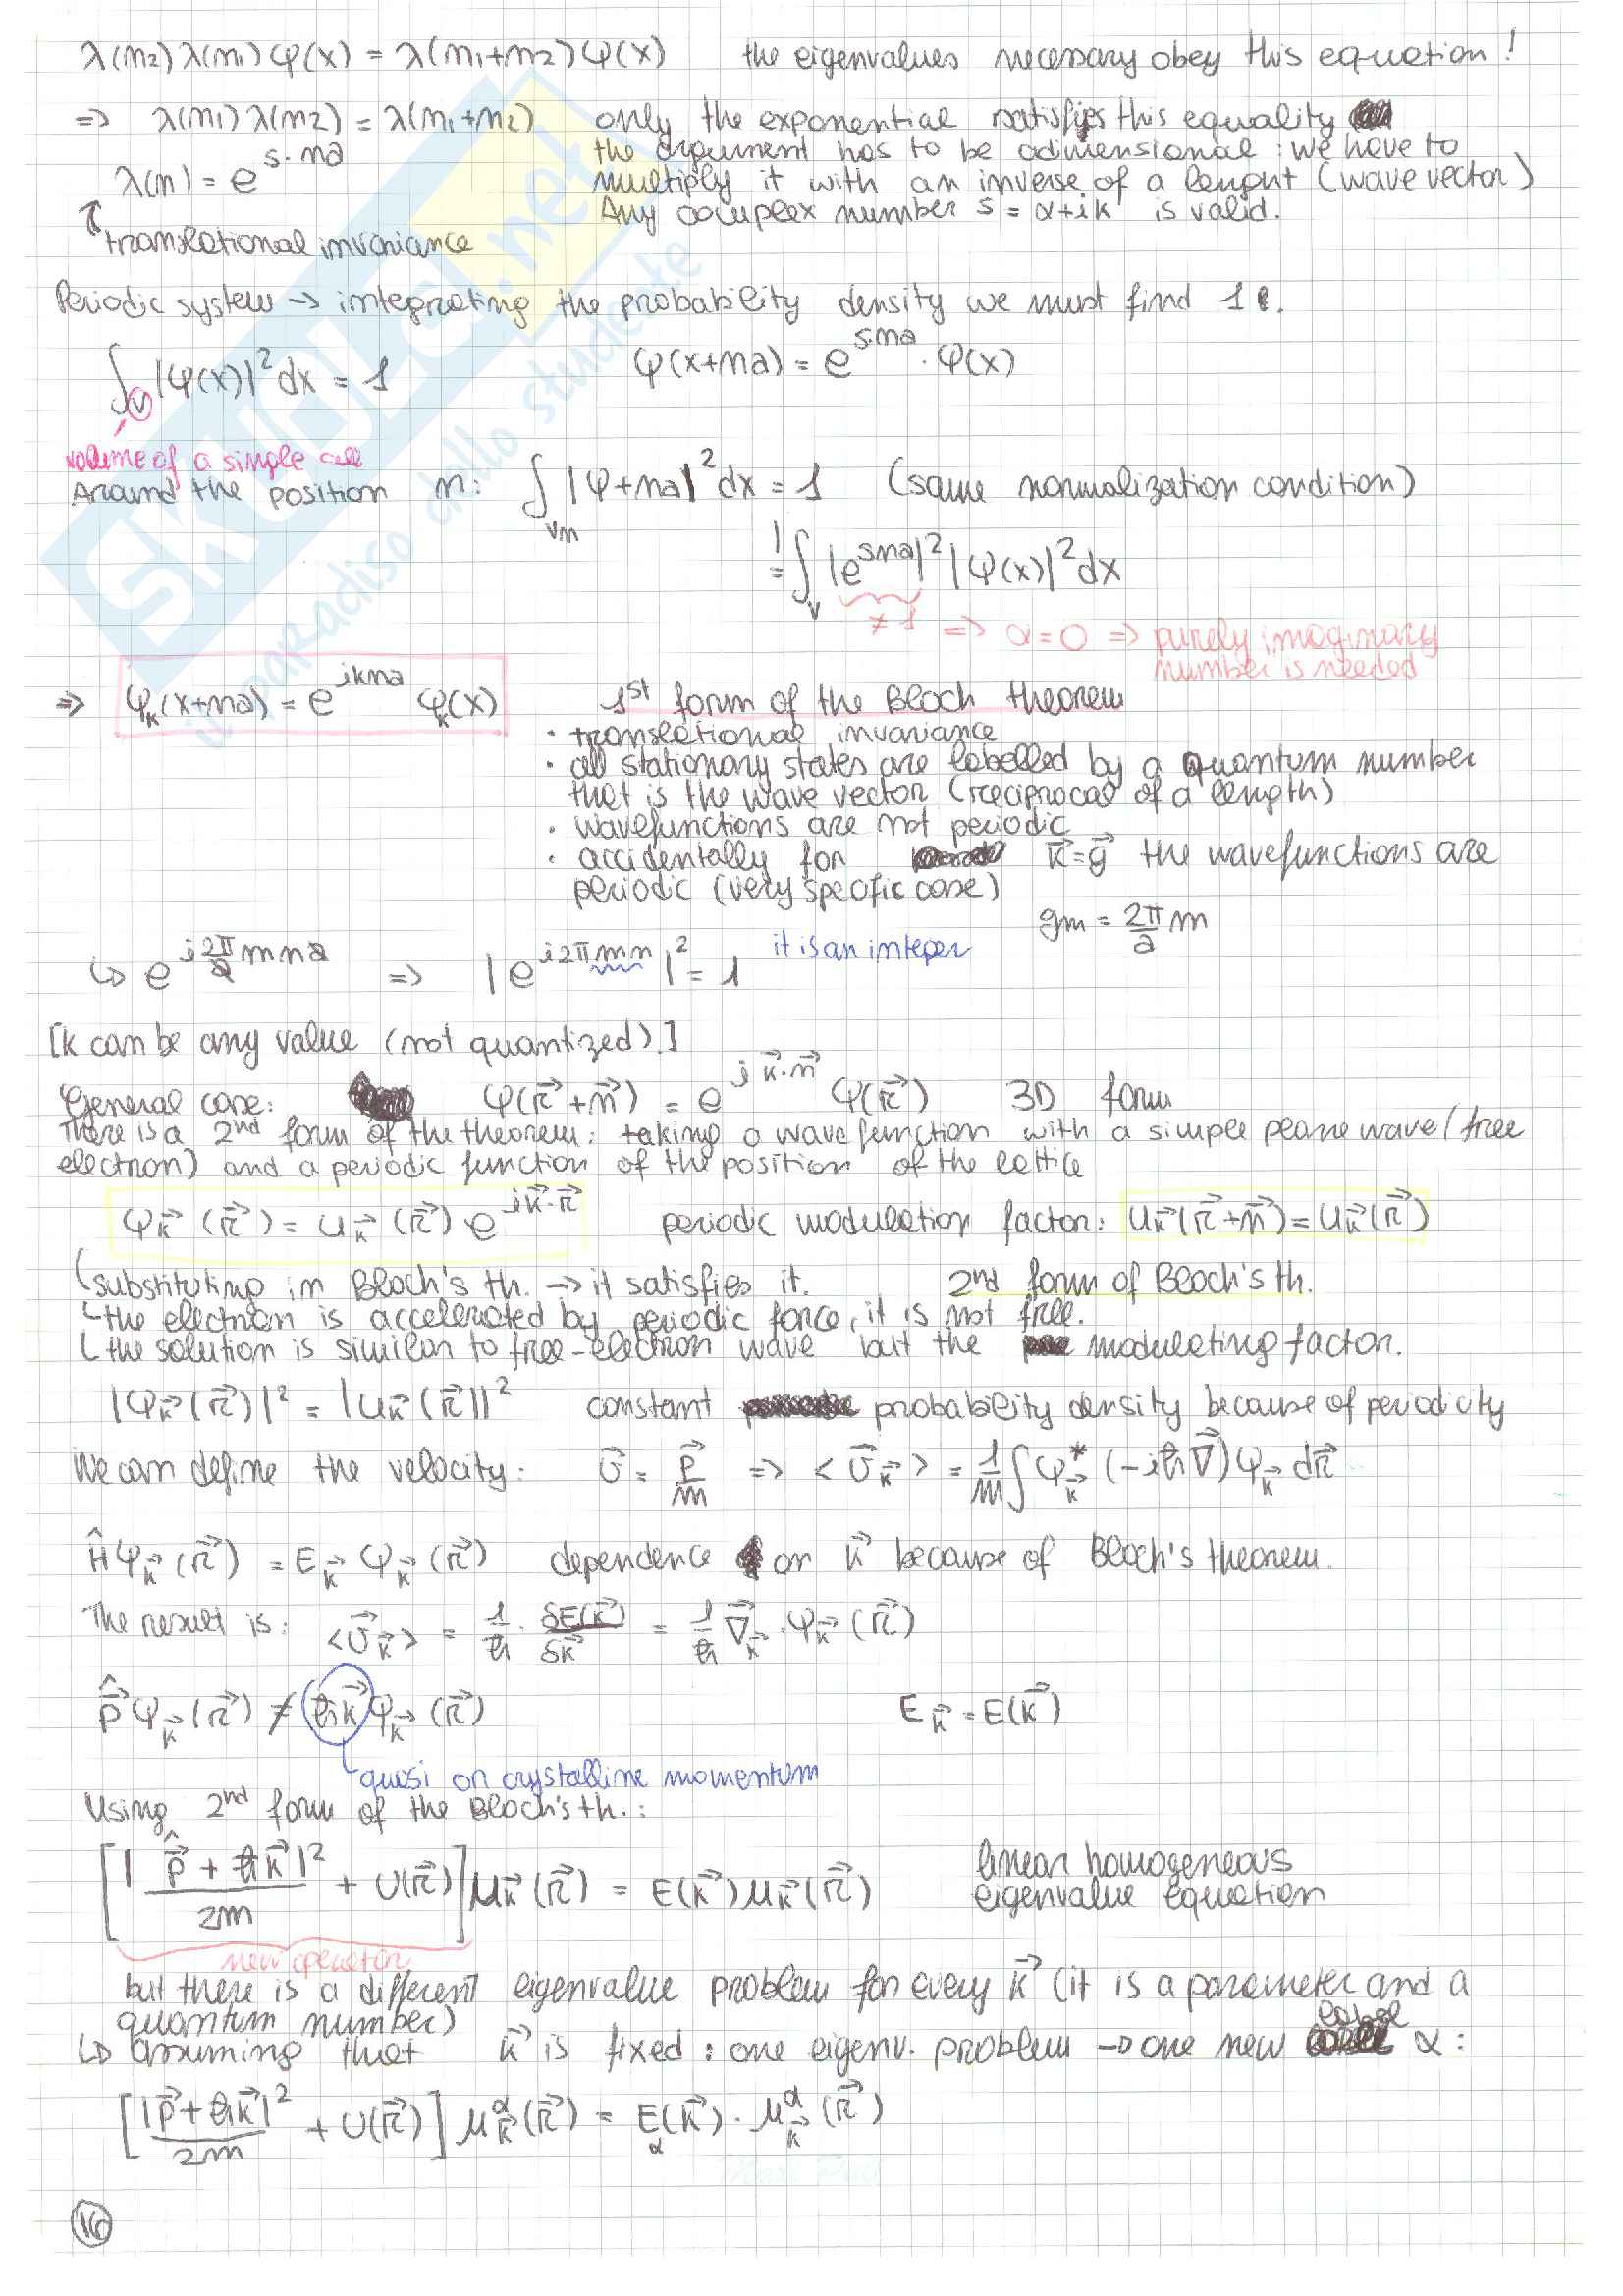 λ(n₂) λ(n₁) φ(x) = λ(n₁+n₂) φ(x) the eigenvalues necessary obey this equation !
=> λ(n₁) λ(n₂) = λ(n₁+n₂) only the exponential satisfies this equality
the argument has to be adimensional : we have to
λ(n) = e^{s·na} multiply it with an inverse of a lenght (wave vector)
Any complex number s = α+ik is valid.
translational invariance
Periodic system → integrating the probability density we must find 1.
∫_V |φ(x)|² dx = 1 φ(x+na) = e^{sna} · φ(x)
volume of a single cell
Around the position n: ∫_{Vn} |φ+na|² dx = 1 (same normalization condition)
= ∫_V |e^{sna}|² |φ(x)|² dx
≠ 1 => α=0 => purely imaginary
number is needed
=> φ_k(x+na) = e^{ikna} φ_k(x) 1st form of the Bloch theorem
· translational invariance
· all stationary states are labelled by a quantum number
that is the wave vector (reciprocal of a length)
· wavefunctions are not periodic
· accidentally for k⃗=g⃗ the wavefunctions are
periodic (very specific case)
g_m = 2π/a m
↳ e^{i 2π/a mna} => |e^{i2πmn}|² = 1 it is an integer
[k can be any value (not quantized).]
General case: φ(r⃗+n⃗) = e^{i k⃗·n⃗} φ(r⃗) 3D form
There is a 2nd form of the theorem: taking a wavefunction with a simple plane wave (free
electron) and a periodic function of the position of the lattice
φ_k⃗(r⃗) = u_k⃗(r⃗) e^{ik⃗·r⃗} periodic modulation factor: u_k⃗(r⃗+n⃗) = u_k⃗(r⃗)
(substituting in Bloch's th. → it satisfies it. 2nd form of Bloch's th.
↳ the electron is accelerated by periodic force, it is not free.
↳ the solution is similar to free-electron wave but the modulating factor.
|φ_k⃗(r⃗)|² = |u_k⃗(r⃗)|² constant probability density because of periodicity
We can define the velocity: v⃗ = p⃗/m => <v⃗_k⃗> = 1/m ∫ φ*_k⃗ (-iħ∇⃗) φ_k⃗ dr⃗
Ĥφ_k⃗(r⃗) = E_k⃗ φ_k⃗(r⃗) dependence on k⃗ because of Bloch's theorem.
The result is: <v⃗_k⃗> = 1/ħ · δE(k⃗)/δk⃗ = 1/ħ ∇⃗_k⃗ · φ_k⃗(r⃗)
p̂⃗ φ_k⃗(r⃗) ≠ ħk⃗ φ_k⃗(r⃗) E_k⃗ = E(k⃗)
quasi or crystalline momentum
Using 2nd form of the Bloch's th.:
[ |p̂⃗ + ħk⃗|²/2m + U(r⃗) ] u_k⃗(r⃗) = E(k⃗) u_k⃗(r⃗) linear homogeneous
eigenvalue equation
new operator
but there is a different eigenvalue problem for every k⃗ (it is a parameter and a
quantum number)
↳ assuming that k⃗ is fixed : one eigenv. problem → one new α :
[ |p⃗+ħk⃗|²/2m + U(r⃗) ] u^α_k⃗(r⃗) = E_α(k⃗) · u^α_k⃗(r⃗)
16
SKUOLA.net
il paradiso dello studente